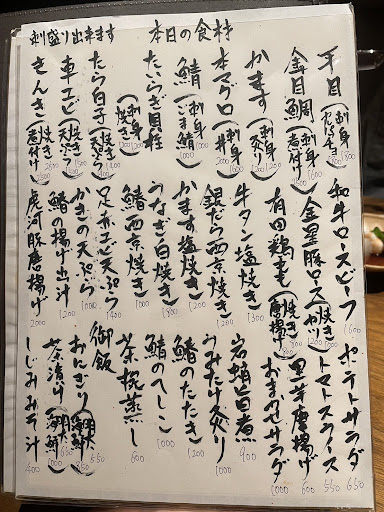 刺盛り出来ます
本日の食材
平目(刺身
金目鯛(刺身 煮付け)
かます(刺身 炙り)
本マグロ(刺身 丼)
鯖(刺身 ごま鯖)
たいらぎ貝柱(刺身 焼き)
たら白子(焼き 天ぷら)
車エビ(焼き 天ぷら)
きんき(焼き 煮付け)
和牛ローストビーフ 1600
金星豚ロース(焼き カツ)
有田鶏もも(焼き 唐揚げ)
牛タン塩焼き
銀だら西京焼き 1200
かます塩焼き
うなぎ白焼き 1800
鯖西京焼き 1000
足赤エビ天ぷら 1400
かきの天ぷら 1200
の揚げ出汁 1000
虎河豚唐揚げ 2000
ポテトサラダ 650
トマトスライス 550
里芋唐揚げ 600
おまかせサラダ 1000
岩蛸旨煮 900
うみたけ炙り 1000
のたたき
鯖のへしこ 1000
茶碗蒸し
御飯
おにぎり
茶漬け
しじみみそ汁 400